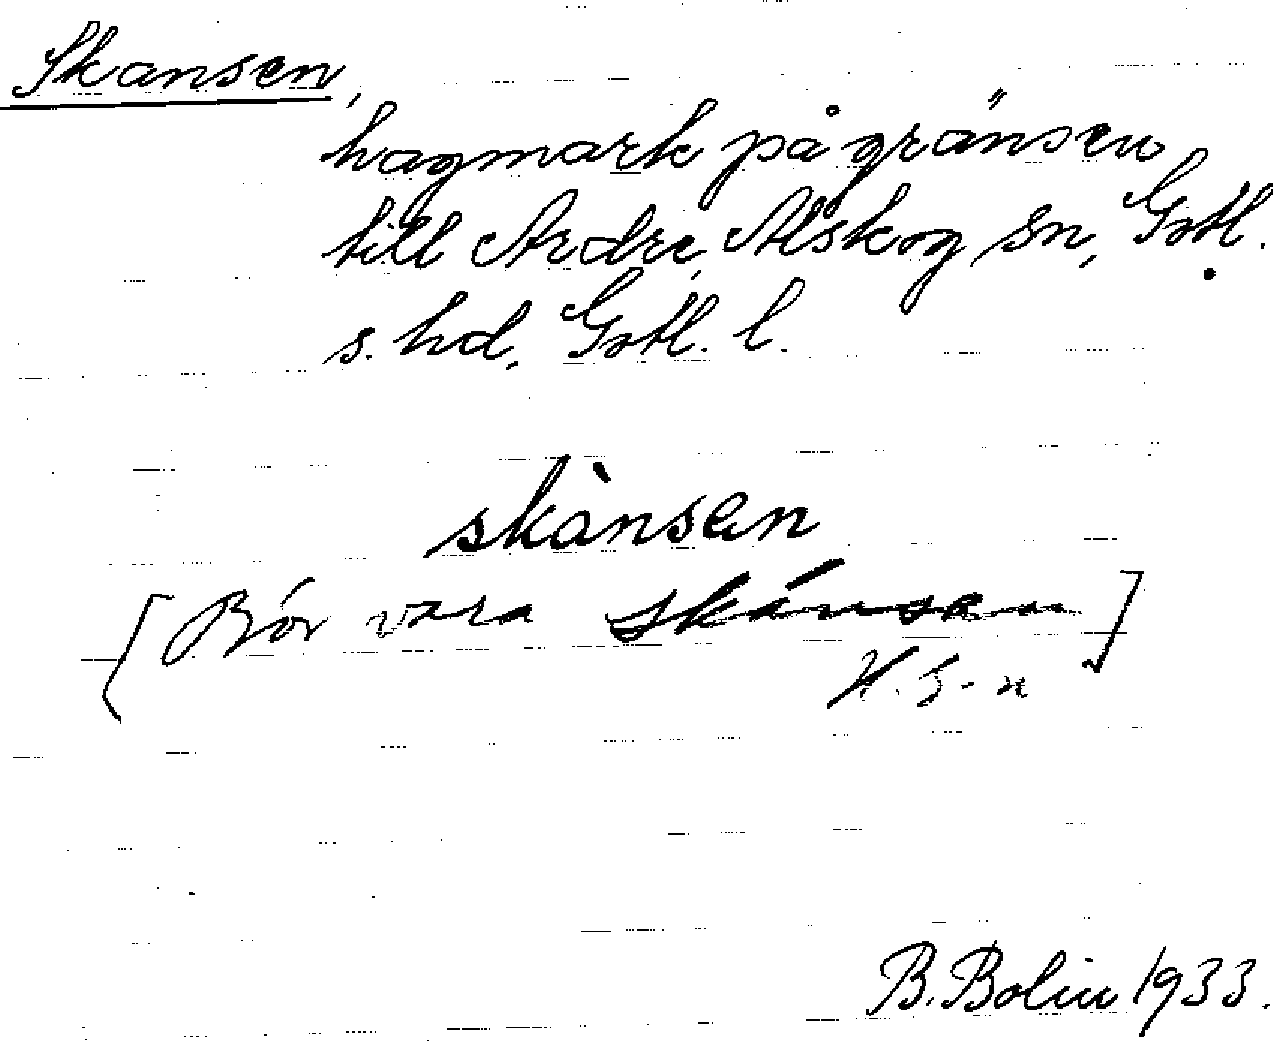 Skansen,
hagmark på gränsen
till Ardre, Alskog sn, Gotl.
s. hd, Gotl. l.
skànsen
[Bör vara skánsen]
H. G-n
B. Bolin 1933.